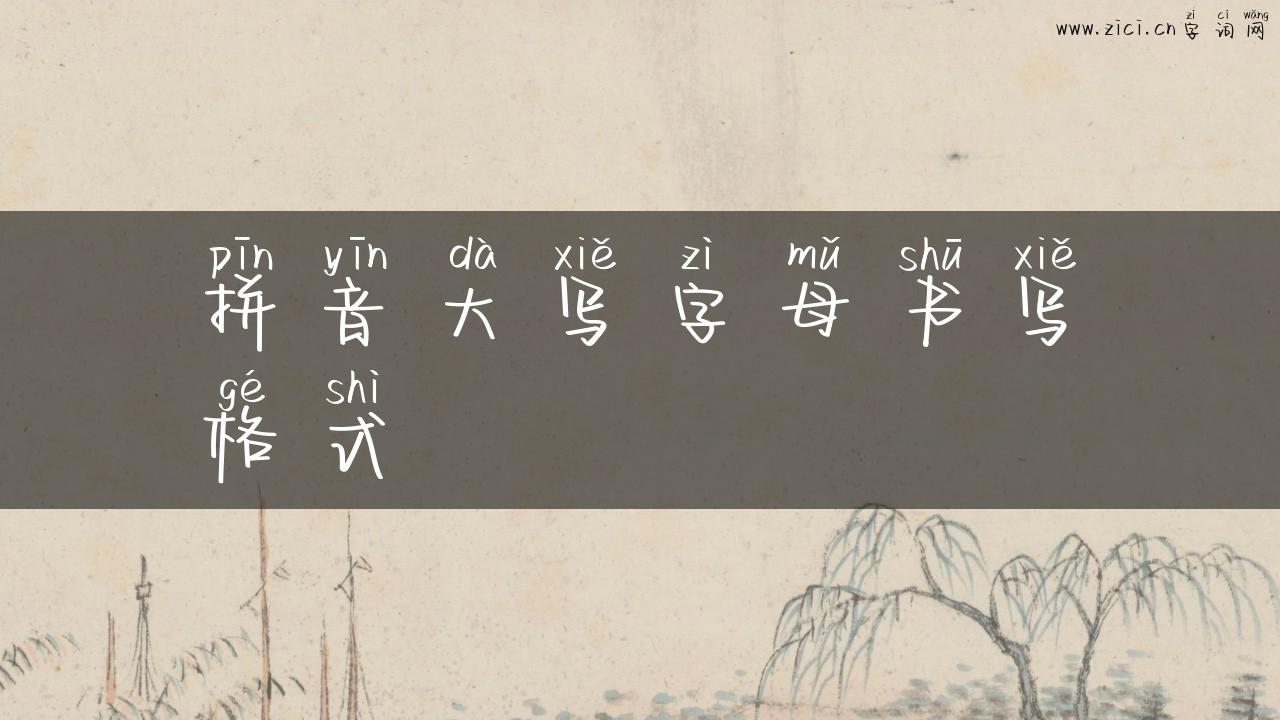 zì cí wǎng
www.zici.cn 字 词 网
pīn yīn dà xiě zì mǔ shū xiě
拼 音 大 写 字 母 书 写
gé shì
格 式